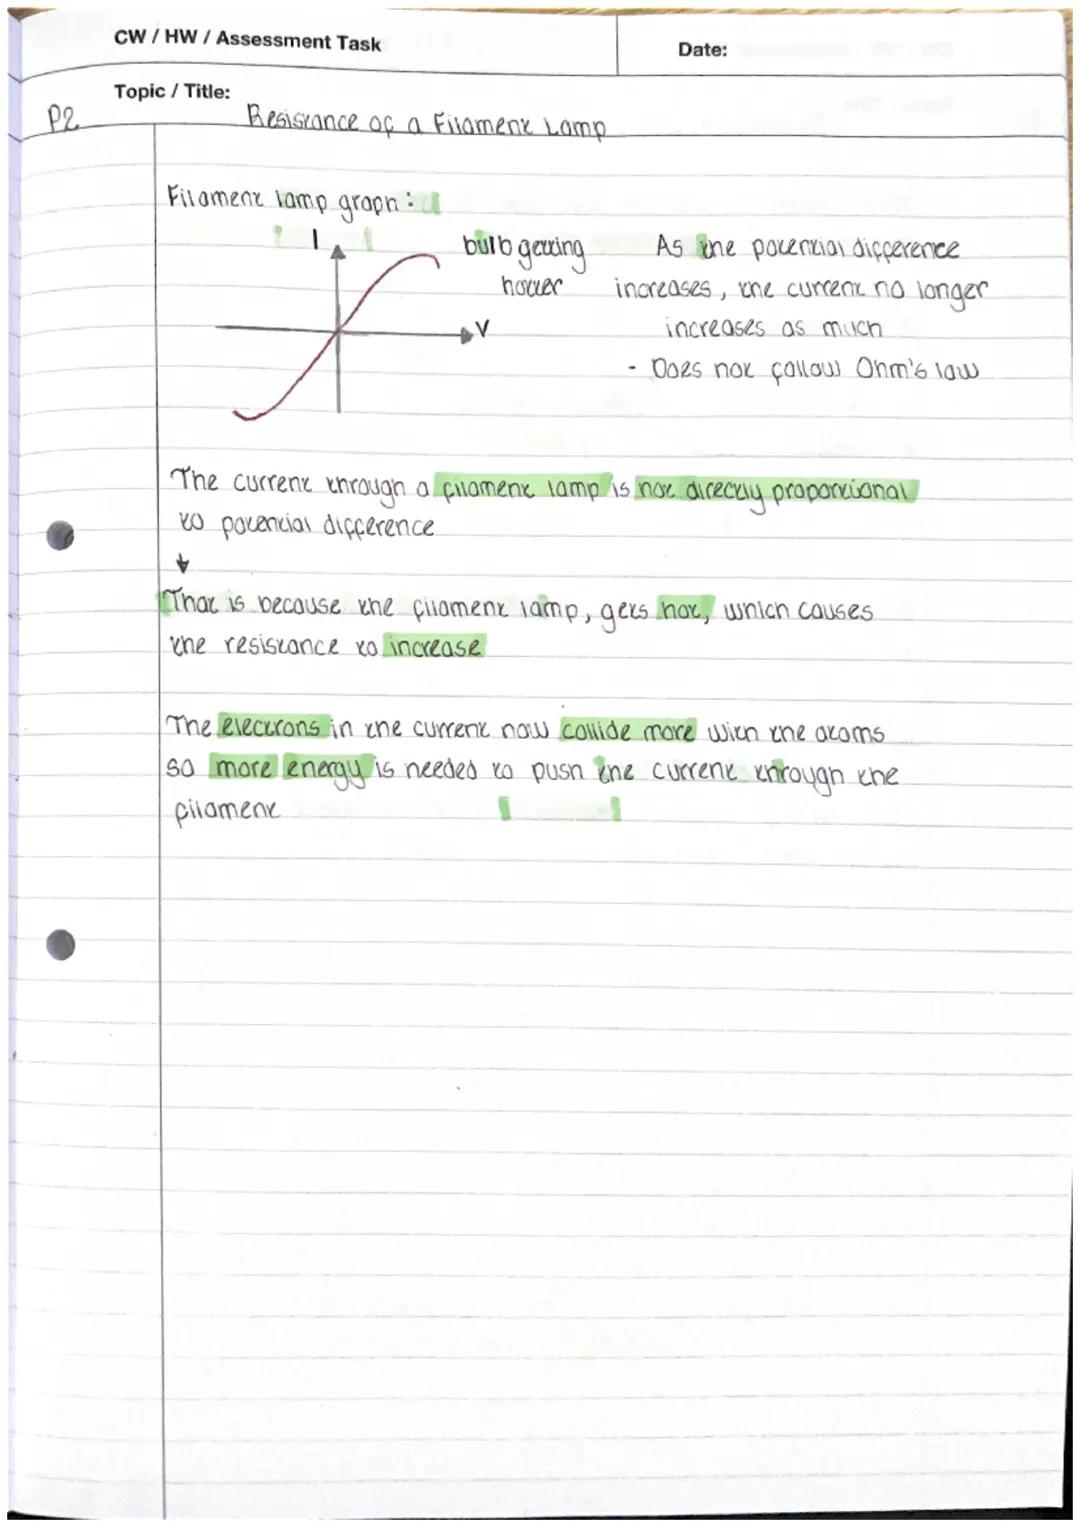 CW / HW / Assessment Task
Date:
Topic / Title:
P2
Resistance of a Filament Lamp
Filament lamp graph:
I
V
bulb getting
hotter
As the potential difference
increases, the current no longer
increases as much
- Does not follow Ohm's law
The current through a filament lamp is not directly proportional
to potential difference
↓
That is because the filament lamp, gets hot, which causes
the resistance to increase
The electrons in the current now collide more with the atoms
so more energy is needed to push the current through the
filament